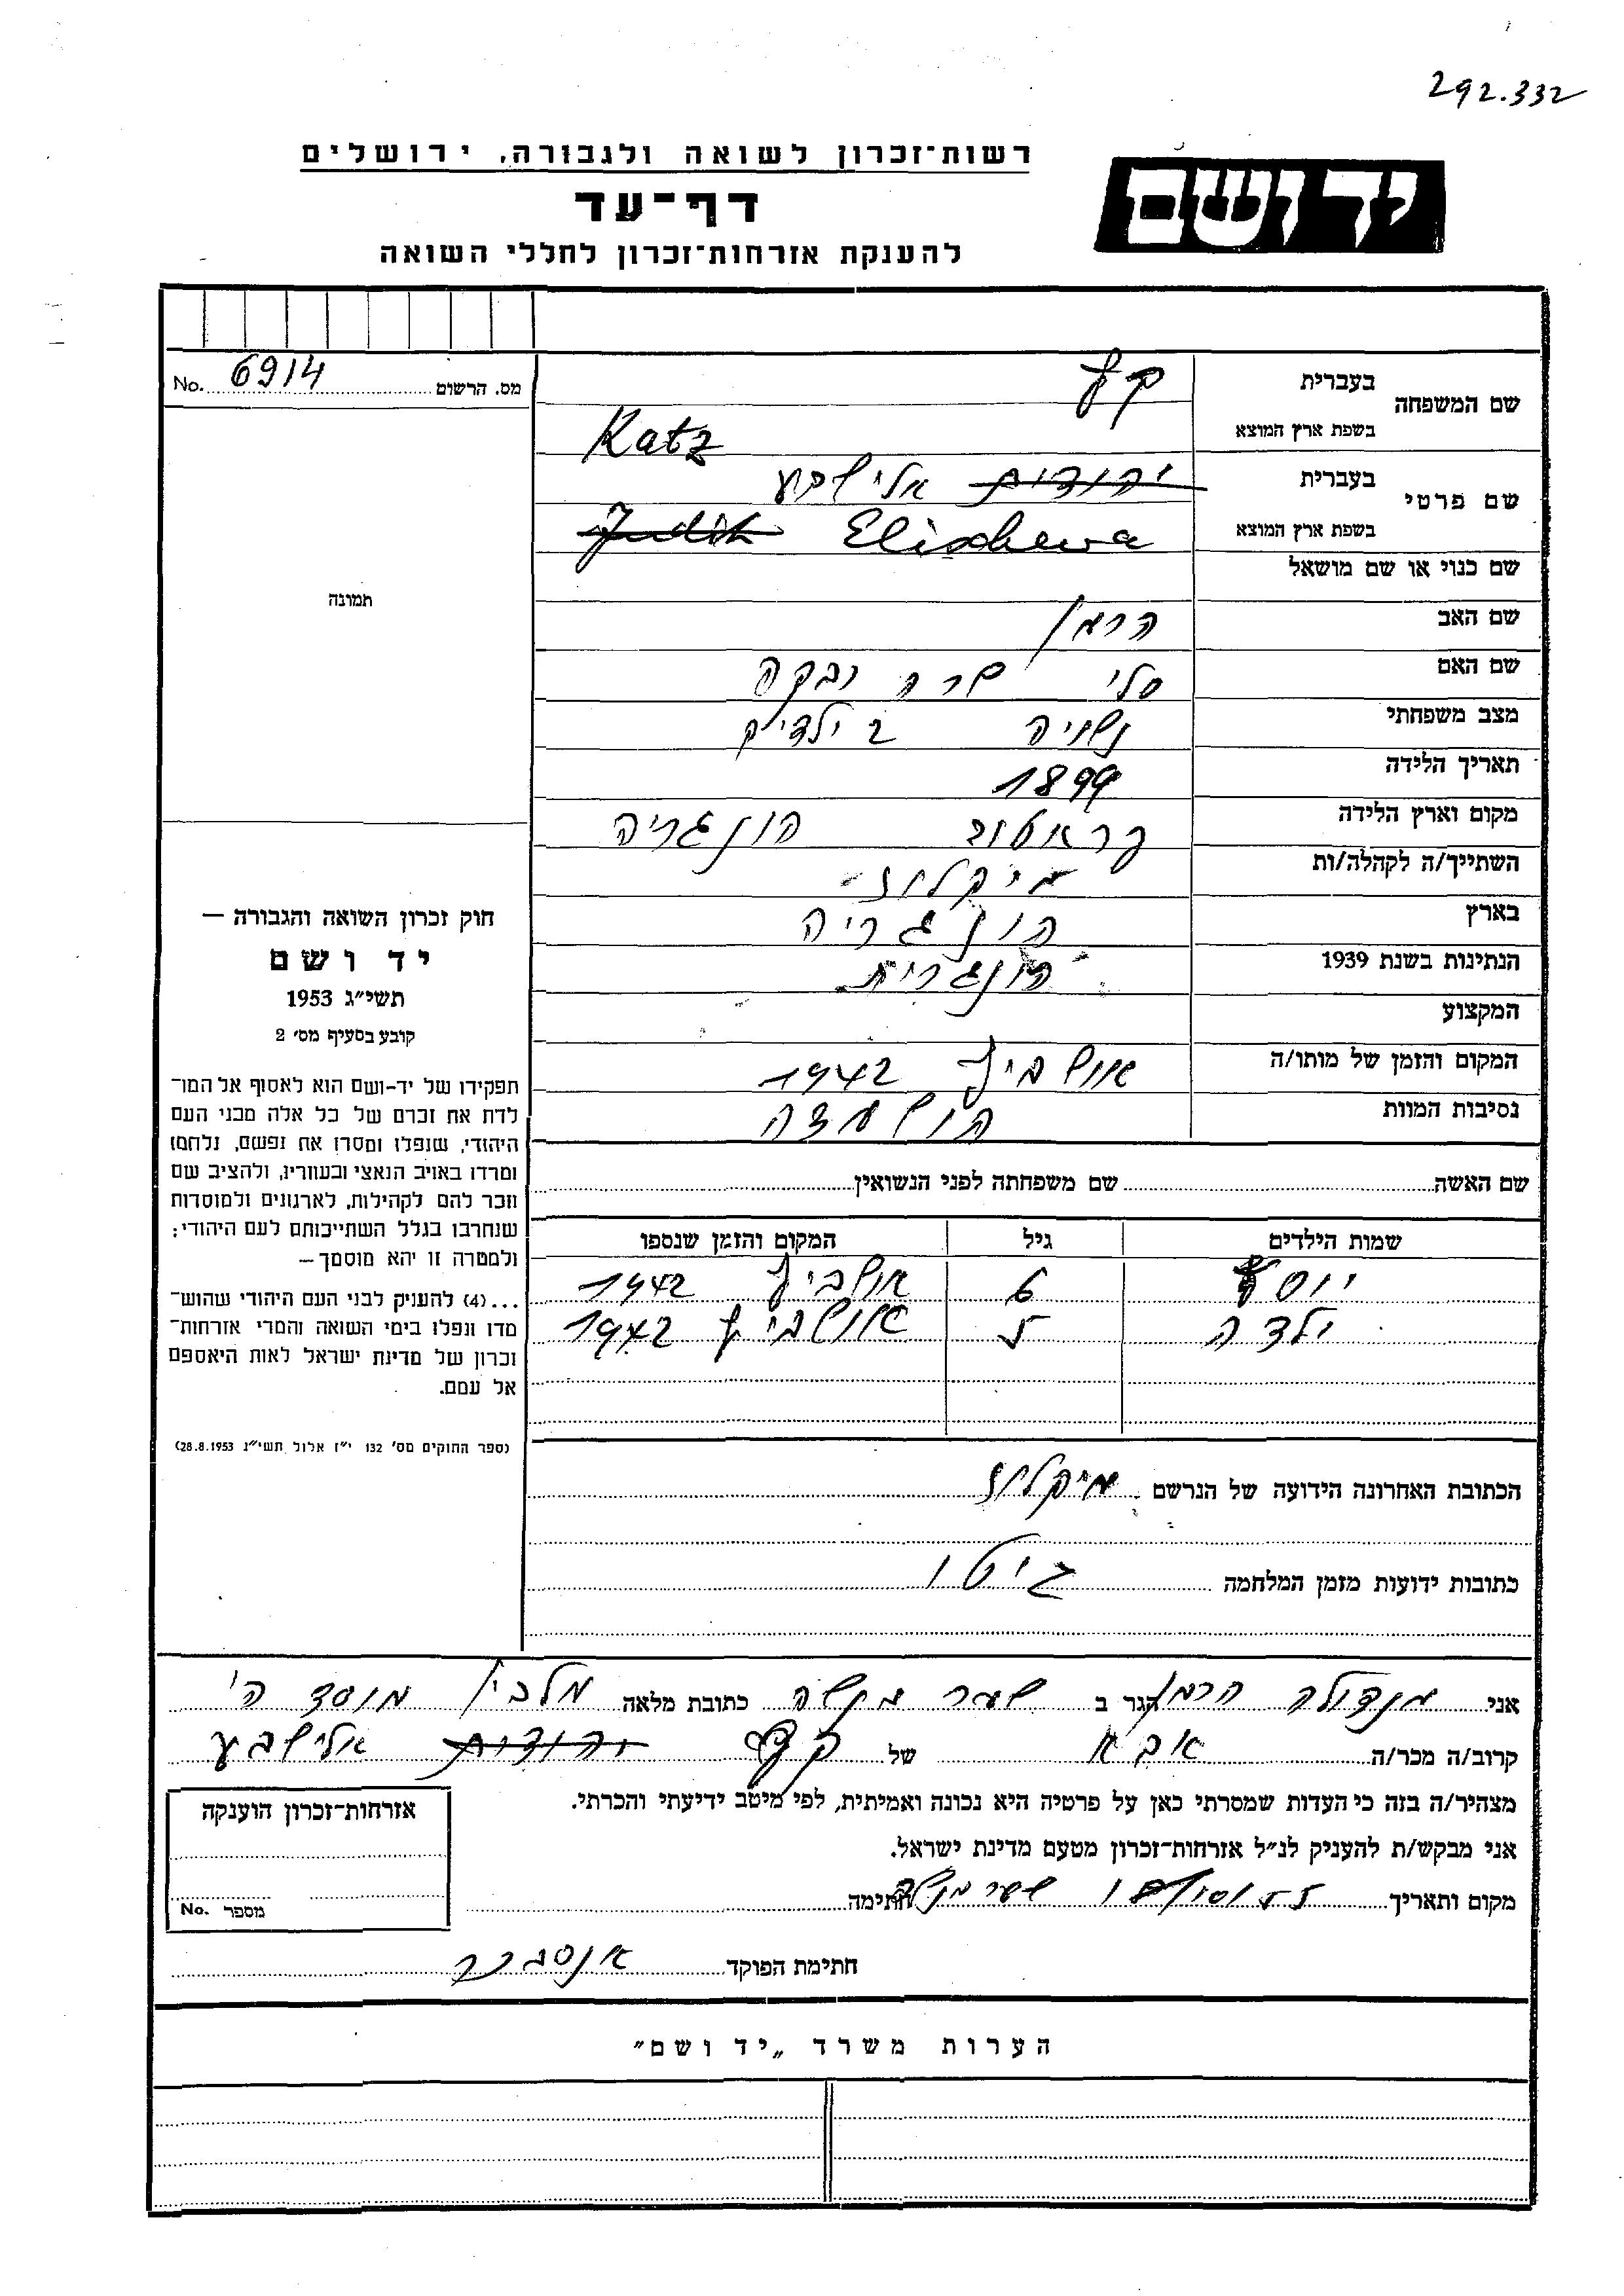 292.332
רשות־זכרון לשואה ולגבורה, ירושלים
יד ושם
דף־עד
להענקת אזרחות־זכרון לחללי השואה
מס. הרשום 6914 No.
שם המשפחה
בעברית קץ
בשפת ארץ המוצא Katz
שם פרטי
בעברית יהודית אלישבע
בשפת ארץ המוצא Judith Elischewa
שם כנוי או שם מושאל
שם האב הרמן
שם האם סלי שרה
מצב משפחתי נשויה 2 ילדים
תאריך הלידה 1899
מקום וארץ הלידה הונגריה
השתייך/ה לקהלה/ות מיקלוז
בארץ הונגריה
הנתינות בשנת 1939 הונגרית
המקצוע
המקום והזמן של מותו/ה אושביץ 1942
נסיבות המוות הושמדה
תמונה
חוק זכרון השואה והגבורה —
יד ושם
תשי״ג 1953
קובע בסעיף מס׳ 2
תפקידו של יד-ושם הוא לאסוף אל המו־
לדת את זכרם של כל אלה מבני העם
היהודי, שנפלו ומסרו את נפשם, נלחמו
ומרדו באויב הנאצי ובעוזריו, ולהציב שם
וזכר להם לקהילות, לארגונים ולמוסדות
שנחרבו בגלל השתייכותם לעם היהודי;
ולמטרה זו יהא מוסמך —
...(4) להעניק לבני העם היהודי שהוש־
מדו ונפלו בימי השואה והמרי אזרחות־
זכרון של מדינת ישראל לאות היאספם
אל עמם.
(ספר החוקים מס׳ 132 י״ז אלול תשי״ג 28.8.1953)
שם האשה שם משפחתה לפני הנשואין
שמות הילדים גיל המקום והזמן שנספו
יוסף 6 אושביץ 1942
ילדה 5 אושביץ 1942
הכתובת האחרונה הידועה של הנרשם מיקלוז
כתובות ידועות מזמן המלחמה גיטו
אני הרמן הגר ב שער מנשה כתובת מלאה מלבין מוסד ה'
קרוב/ה מכר/ה אבא של קץ יהודית אלישבע
מצהיר/ה בזה כי העדות שמסרתי כאן על פרטיה היא נכונה ואמיתית, לפי מיטב ידיעתי והכרתי.
אני מבקש/ת להעניק לנ״ל אזרחות־זכרון מטעם מדינת ישראל.
מקום ותאריך שער מנשה חתימה
אזרחות־זכרון הוענקה
מספר No.
חתימת הפוקד
הערות משרד „יד ושם״